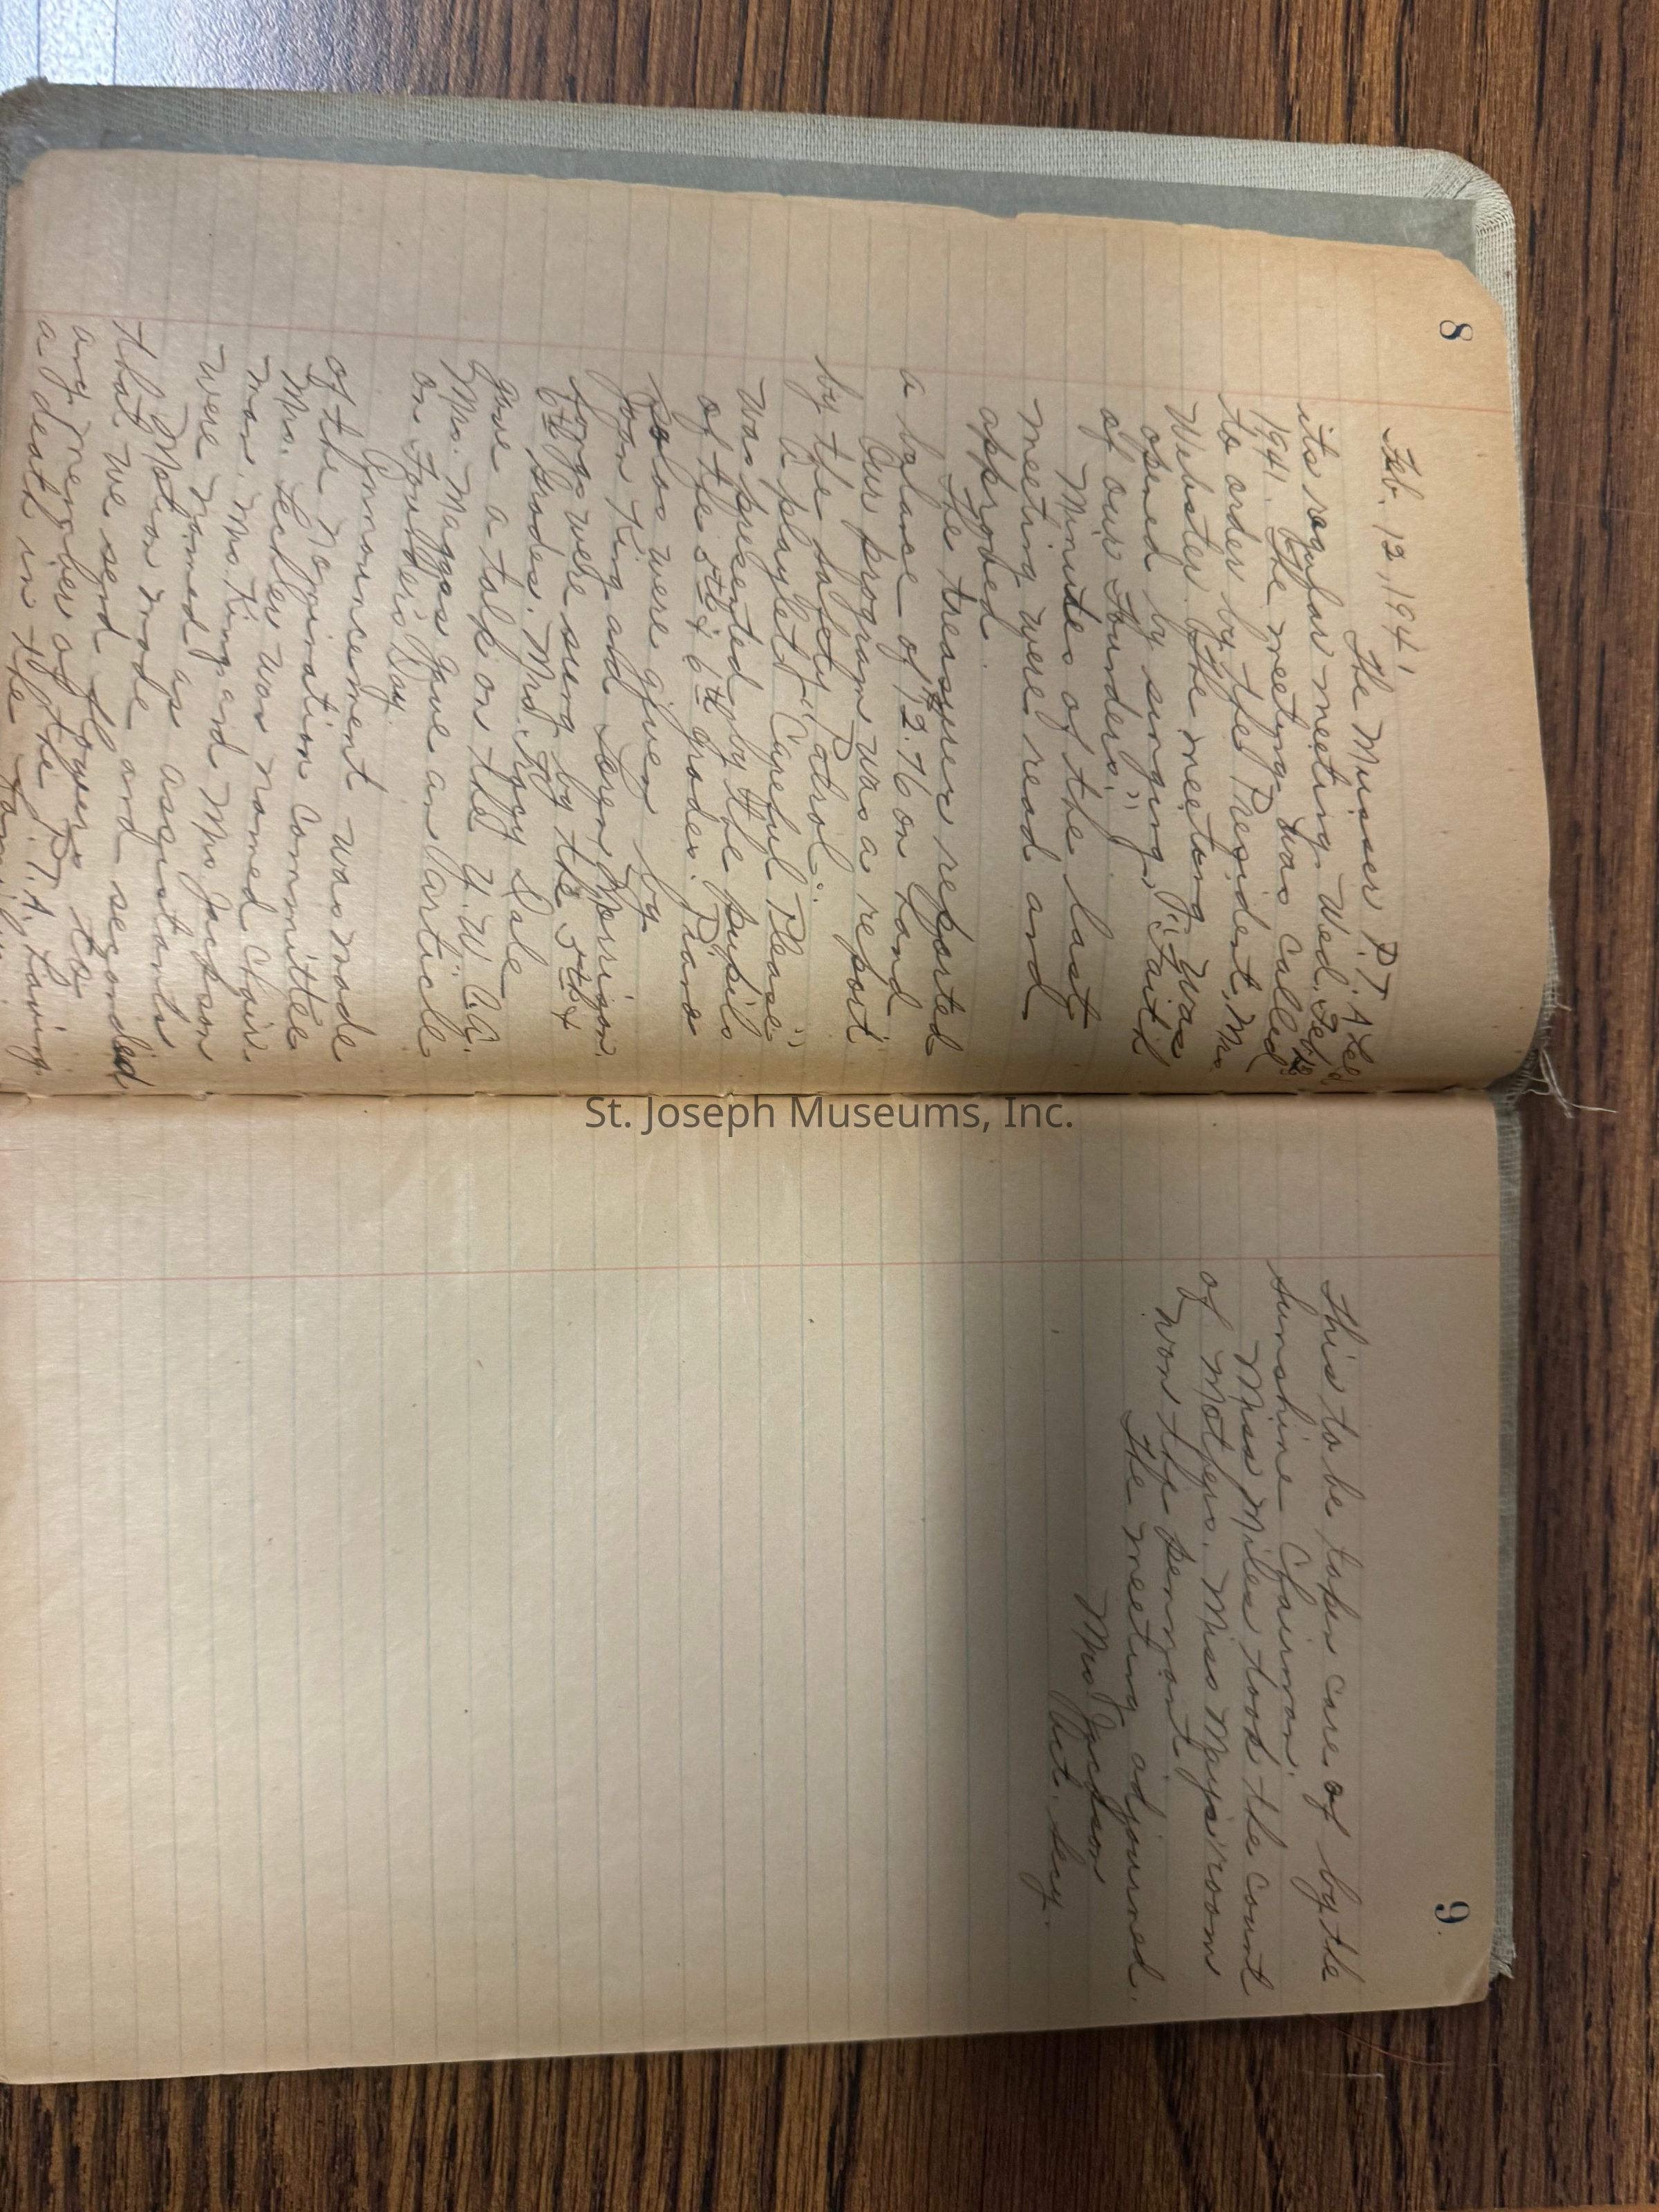 8
Feb. 12, 1941
The Musser P.T.A. held
its regular meeting Wed. Feb. 12
1941. The meeting was called
to order by the President, Mrs.
Webster. The meeting was
opened by singing, "Faith
of our Founders."
Minutes of the last
meeting were read and
approved.
The treasurer reported
a balance of $2.76 on hand
Our program was a report
by the Safety Patrol.
A playlet "Careful Please"
was presented by the pupils
of the 5th & 6th grades. Piano
solos were given by
Joan King and Loren Morrison.
Songs were sung by the 5th &
6th grades. Mrs. Roy Sale
gave a talk on the Y.W.C.A.
Mrs. Maggas gave an Article
on Founder's Day.
Announcement was made
of the Nomination Committee
Mrs. was named Chair-
man. Mrs. King and Mrs. Jackson
were named as assistants
Motion made and seconded
that we send flowers to
any member of the P.T.A. having
a death in the family.
9
This to be taken care of by the
Sunshine Chairman.
Miss Miles took the count
of Mothers. Miss Mays' room
won the pennant.
The meeting adjourned.
Mrs Jackson
Act. Secy.
St. Joseph Museums, Inc.